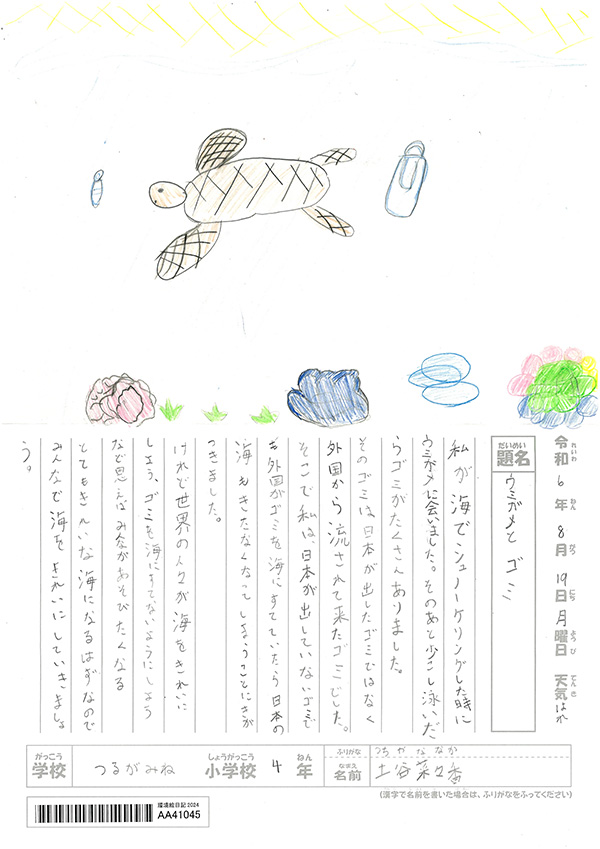 令和6年8月19日月曜日 天気はれ
れいわ ねん がつ にち ようび てんき
だいめい
題名 ウミガメとゴミ
私が海でシュノーケリングした時に
ウミガメに会いました。そのあと少こし泳いだ
らゴミがたくさんありました。
そのゴミは日本が出したゴミではなく
外国から流されて来たゴミでした。
そこで私は、日本が出していないゴミで
も外国がゴミを海にすてていたら日本の
海もきたなくなってしまうことにきが
つきました。
けれど世界の人々が海をきれいに
しよう、ゴミを海にすてないようにしよう
など思えばみながあそびたくなる
とてもきれいな海になるはずなので
みんなで海をきれいにしていきましょ
う。
がっこう しょうがっこう ねん
学校 つるがみね 小学校 4年
ふりがな つちやななか
なまえ
名前 土谷菜々香
(漢字で名前を書いた場合は、ふりがなをふってください)
環境絵日記2024
AA41045